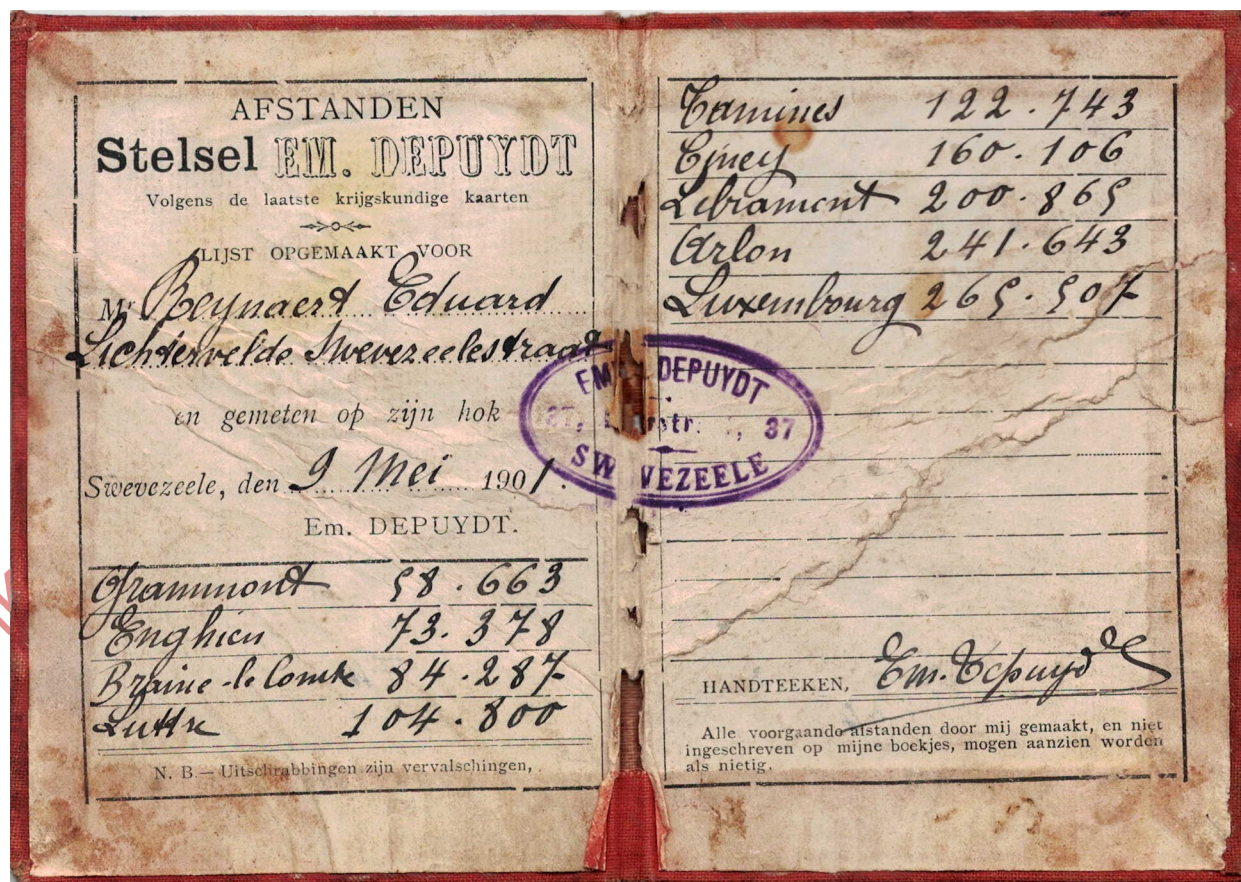 AFSTANDEN
Stelsel EM. DEPUYDT
Volgens de laatste krijgskundige kaarten
LIJST OPGEMAAKT VOOR
Mr Reynaert Eduard
Lichtervelde Swevezeelestraat
en gemeten op zijn hok
Swevezeele, den 9 Mei 1901.
Em. DEPUYDT.
Grammont 58.663
Enghien 73.378
Braine-le Comte 84.287
Luttre 104.800
N. B.— Uitschrabbingen zijn vervalschingen,
Tamines 122.743
Ciney 160.106
Libramont 200.865
Arlon 241.643
Luxembourg 265.507
EM DEPUYDT
37, str. , 37
SWEVEZEELE
HANDTEEKEN, Em. Depuydt
Alle voorgaande afstanden door mij gemaakt, en niet
ingeschreven op mijne boekjes, mogen aanzien worden
als nietig.